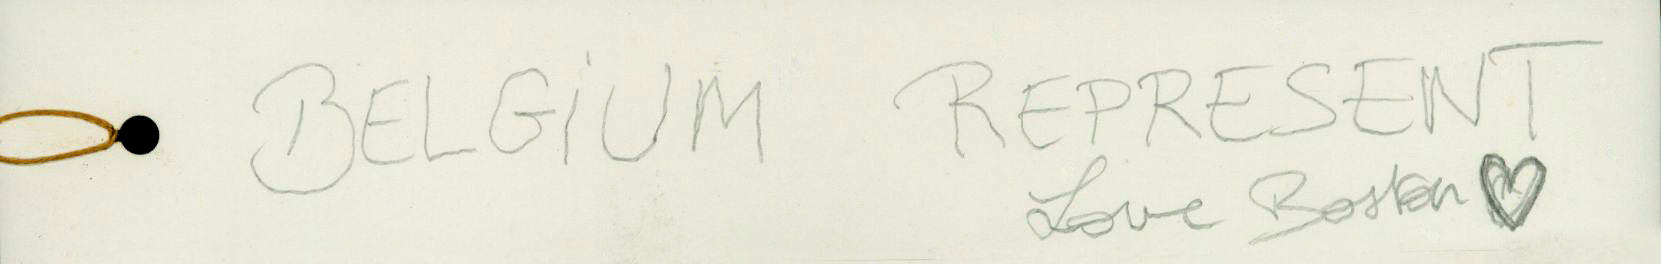 BELGiUM REPRESENT
Love Boston ♥